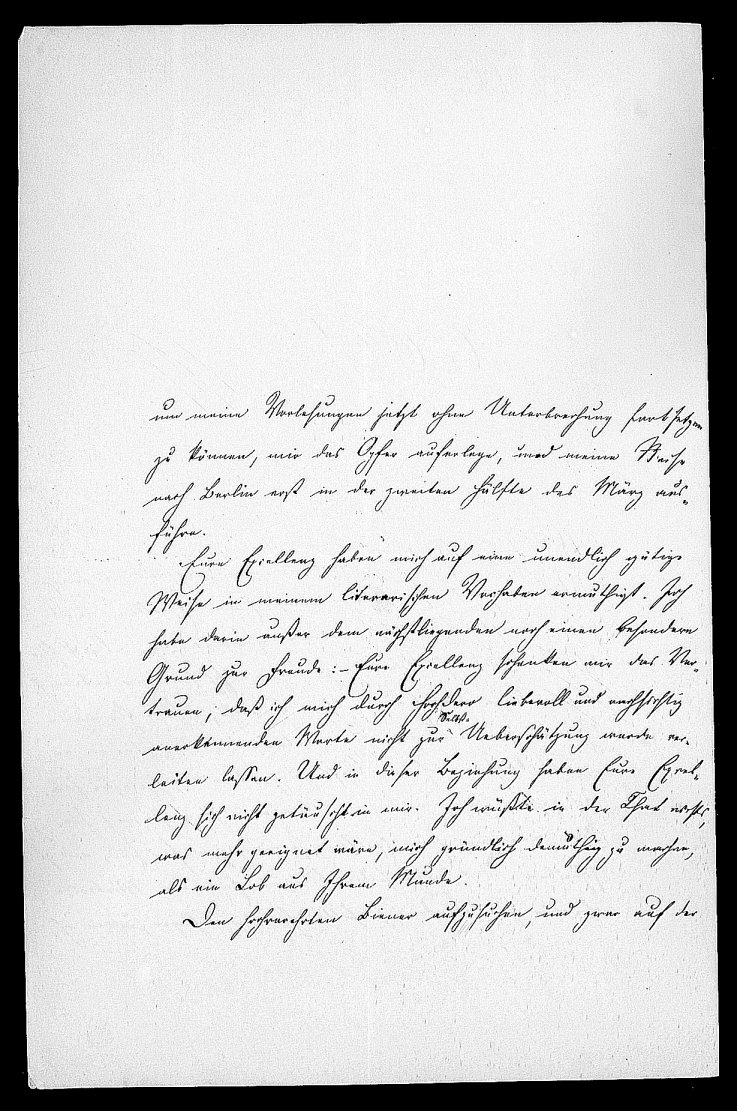 um meine Vorlesungen jetzt ohne Unterbrechung fortsetzen
zu können, mir das Opfer auferlege, und meine Reise
nach Berlin erst in der zweiten Hälfte des März aus-
führe.
Eure Excellenz haben mich auf eine unendlich gütige
Weise in meinem literarischen Vorhaben ermuthigt. Ich
habe darin außer dem nächstliegenden noch einen besondern
Grund zur Freude: – Eure Excellenz schenken mir das Ver-
trauen, daß ich mich durch Hochdero liebevoll und nachsichtig
anerkennenden Worte nicht zur Selbst-Ueberschätzung werde ver-
leiten lassen. Und in dieser Beziehung haben Eure Excel-
lenz sich nicht getäuscht in mir. Ich wüßte in der That nichts,
was mehr geeignet wäre, mich gründlich demüthig zu machen,
als ein Lob aus Ihrem Munde.
Den hochverehrten Biener aufzusuchen, und zwar auf der